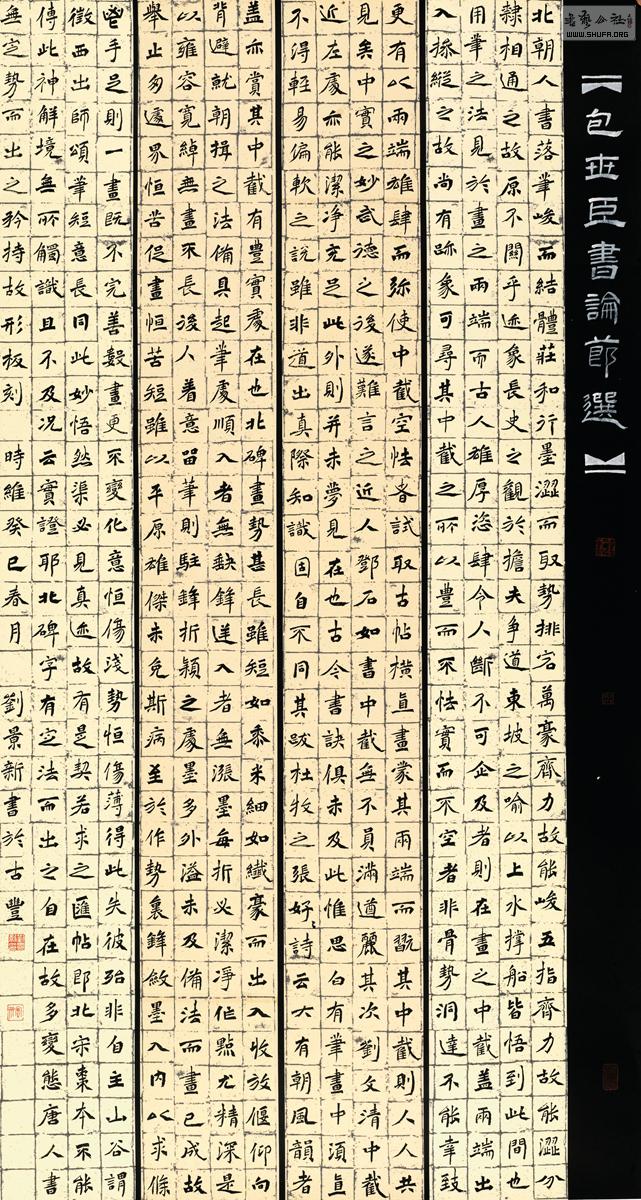 書藝公社
WWW.SHUFA.ORG
【包世臣書論節選】
北朝人書落筆峻而結體莊和行墨澀而取勢排宕萬豪齊力故能峻五指齊力故能澀分
隸相通之故原不關乎迹象長史之觀於擔夫爭道東坡之喻以上水撐船皆悟到此間也
用筆之法見於畫之兩端而古人雄厚恣肆令人斷不可企及者則在畫之中截蓋兩端出
入操縱之故尚有跡象可尋其中截之所以豐而不怯實而不空者非骨勢洞達不能幸致
更有以兩端雄肆而弥使中截空怯者試取古帖橫直畫蒙其兩端而翫其中截則人人共
見矣中實之妙武德之後遂難言之近人鄧石如書中截無不員滿遒麗其次劉文清中截
近左處亦能潔淨充足此外則并未夢見在也古今書訣俱未及此惟思白有筆畫中須直
不得輕易偏軟之説雖非道出真際知識固自不同其跋杜牧之張好〻詩云大有朝風韻者
蓋亦賞其中截有豐實處在也北碑畫勢甚長雖短如黍米細如纖豪而出入收放偃仰向
背避就朝揖之法備具起筆處順入者無缺鋒逆入者無漲墨每折必潔淨作點尤精深是
以雍容寬綽無畫不長後人着意留筆則駐鋒折穎之處墨多外溢未及備法而畫已成故
舉止匆遽界恒苦促畫恒苦短雖以平原雄傑未免斯病至於作勢裹鋒斂墨入內以求條
鬯手足則一畫既不完善數畫更不變化意恒傷淺勢恒傷薄得此失彼殆非自主山谷謂
徵西出師頌筆短意長同此妙悟然渠必見真迹故有是契若求之匯帖即北宋棗本不能
傳此神解境無所觸識且不及況云實證耶北碑字有定法而出之自在故多變態唐人書
無定勢而出之矜持故形板刻 時維癸巳春月 劉景新書於古豐